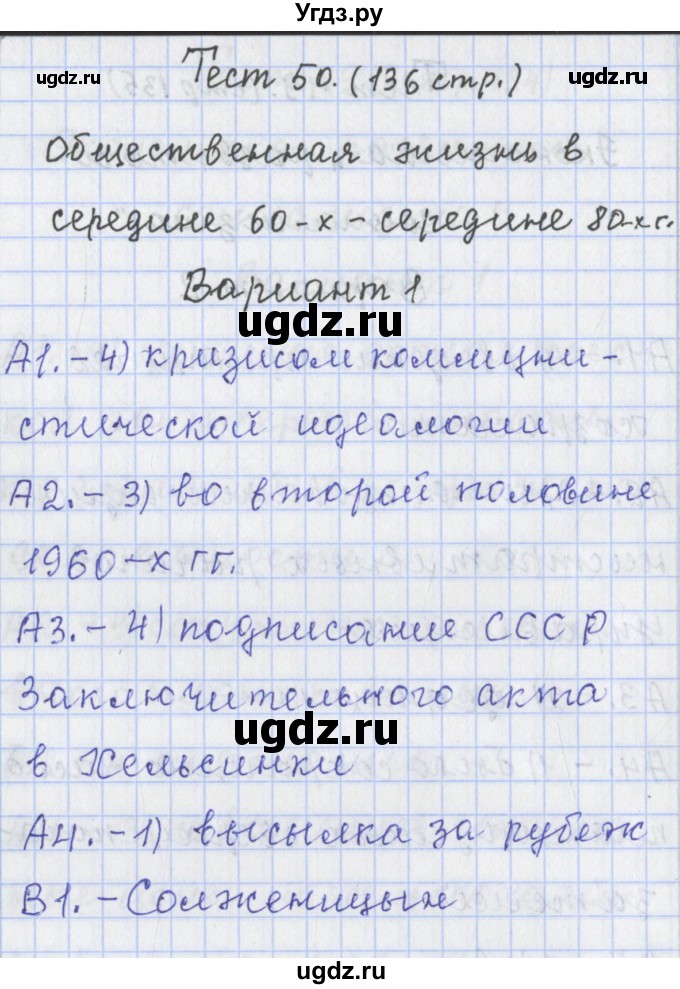 Угдз.ру
Тест 50. (136 стр.)
ugdz.ru
ugdz.ru
Общественная жизнь в
середине 60-х - середине 80-х г.
Вариант 1
ugdz.ru
А1. - 4) кризисом коммуни-
стической идеологии
А2. - 3) во второй половине
1960-х гг.
А3. - 4) подписание СССР
Заключительного акта
ugdz.ru
в Хельсинки
А4. - 1) высылка за рубеж
В1. - Солженицын
ugdz.ru
ugdz.ru